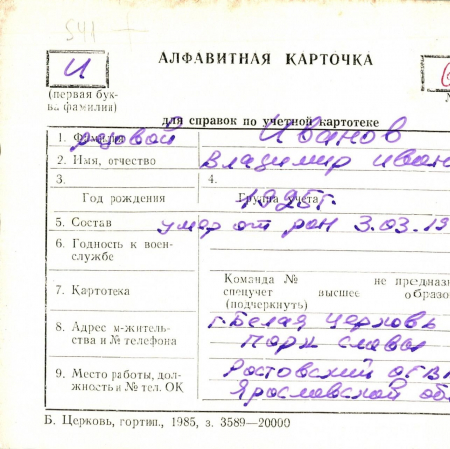 541
И
АЛФАВИТНАЯ КАРТОЧКА
(первая бук-
ва фамилии)
для справок по учетной картотеке
1. Фамилия рядовой Иванов
2. Имя, отчество Владимир Иван
3. 4.
Год рождения Группа учета 1925г.
5. Состав умер от ран 3.03.19
6. Годность к воен-
службе
Команда № не предназ
7. Картотека спецучет высшее образо
(подчеркнуть)
8. Адрес м-житель- г. Белая Церковь
ства и № телефона Парк славы
9. Место работы, дол- Ростовский ОГВК
жность и № тел. ОК Ярославской обл
Б. Церковь, гортип., 1985, з. 3589—20000